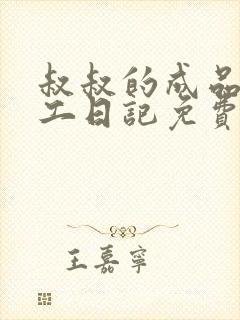 叔叔的成品
工日記免費
王嘉寧